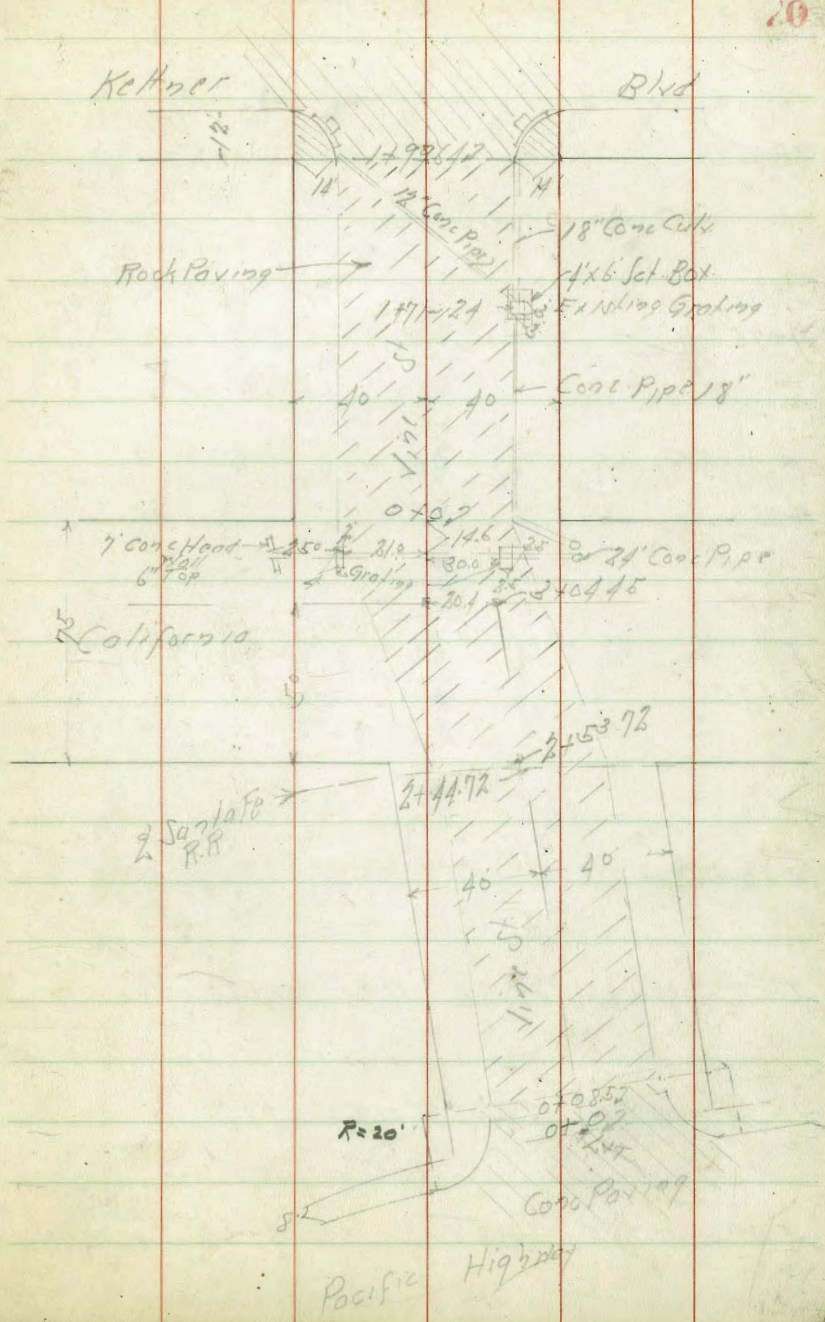 Kettner Blvd
12'
14' 14'
12" Conc Pipe
18" Conc Culv
Rock Paving
4'x6' Set Box
Existing Grating
1+71-124
Conc Pipe 18"
40 40
Vine St
0+0.2
7' Conc Hand
Wall
6" Top
250
21.0
Grating
14.6
30.0
2.5
24" Conc Pipe
20.4
3+04.45
75
California
50
2+53.72
2+44.72
Santa Fe
R.R
40 40
Vine St
0+08.52
R=20'
Conc Paving
8.2
Pacific Highway